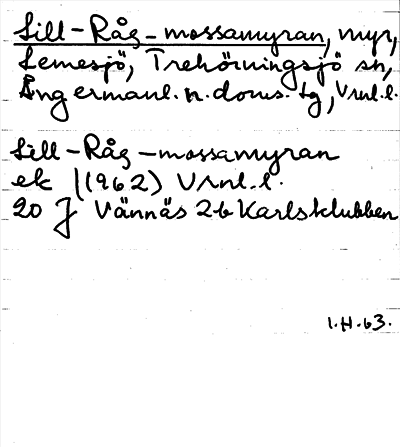 Lill-Råg-mossamyran, myr,
Lemesjö, Trehörningsjö sn,
Ångermanl. n. doms. tg, Vrnl. l.
Lill-Råg-mossamyran
ek 1(1962) Vrnl. l.
20 J Vännäs 2b Karlsklubben
1.H.63.